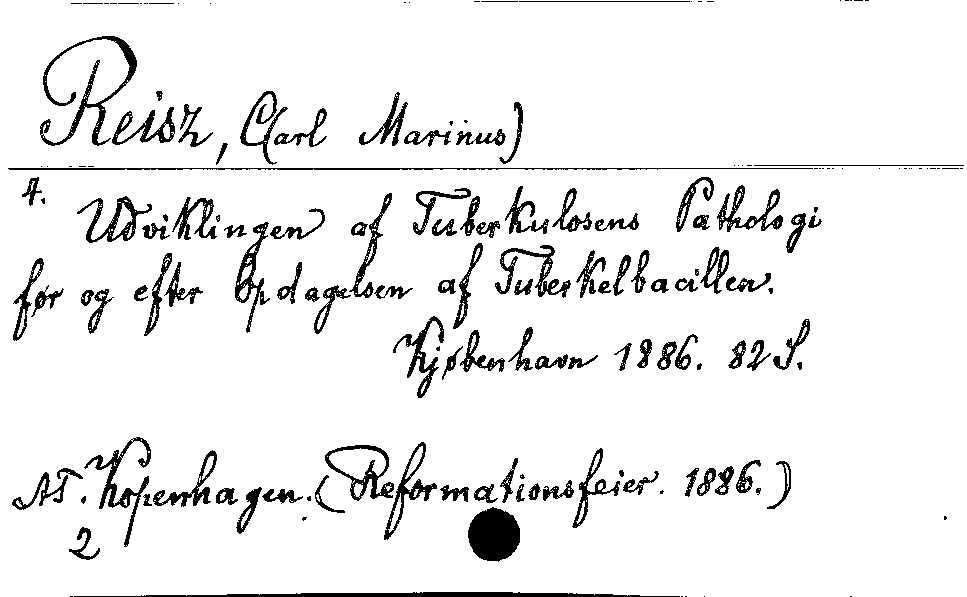 Reisz, C(arl Marinus)
4.
Udviklingen af Tuberkulosens Pathologi
før og efter Opdagelsen af Tuberkelbacillen.
Kjøbenhavn 1886. 82 S.
AT. Kopenhagen. (Reformationsfeier. 1886.)
2